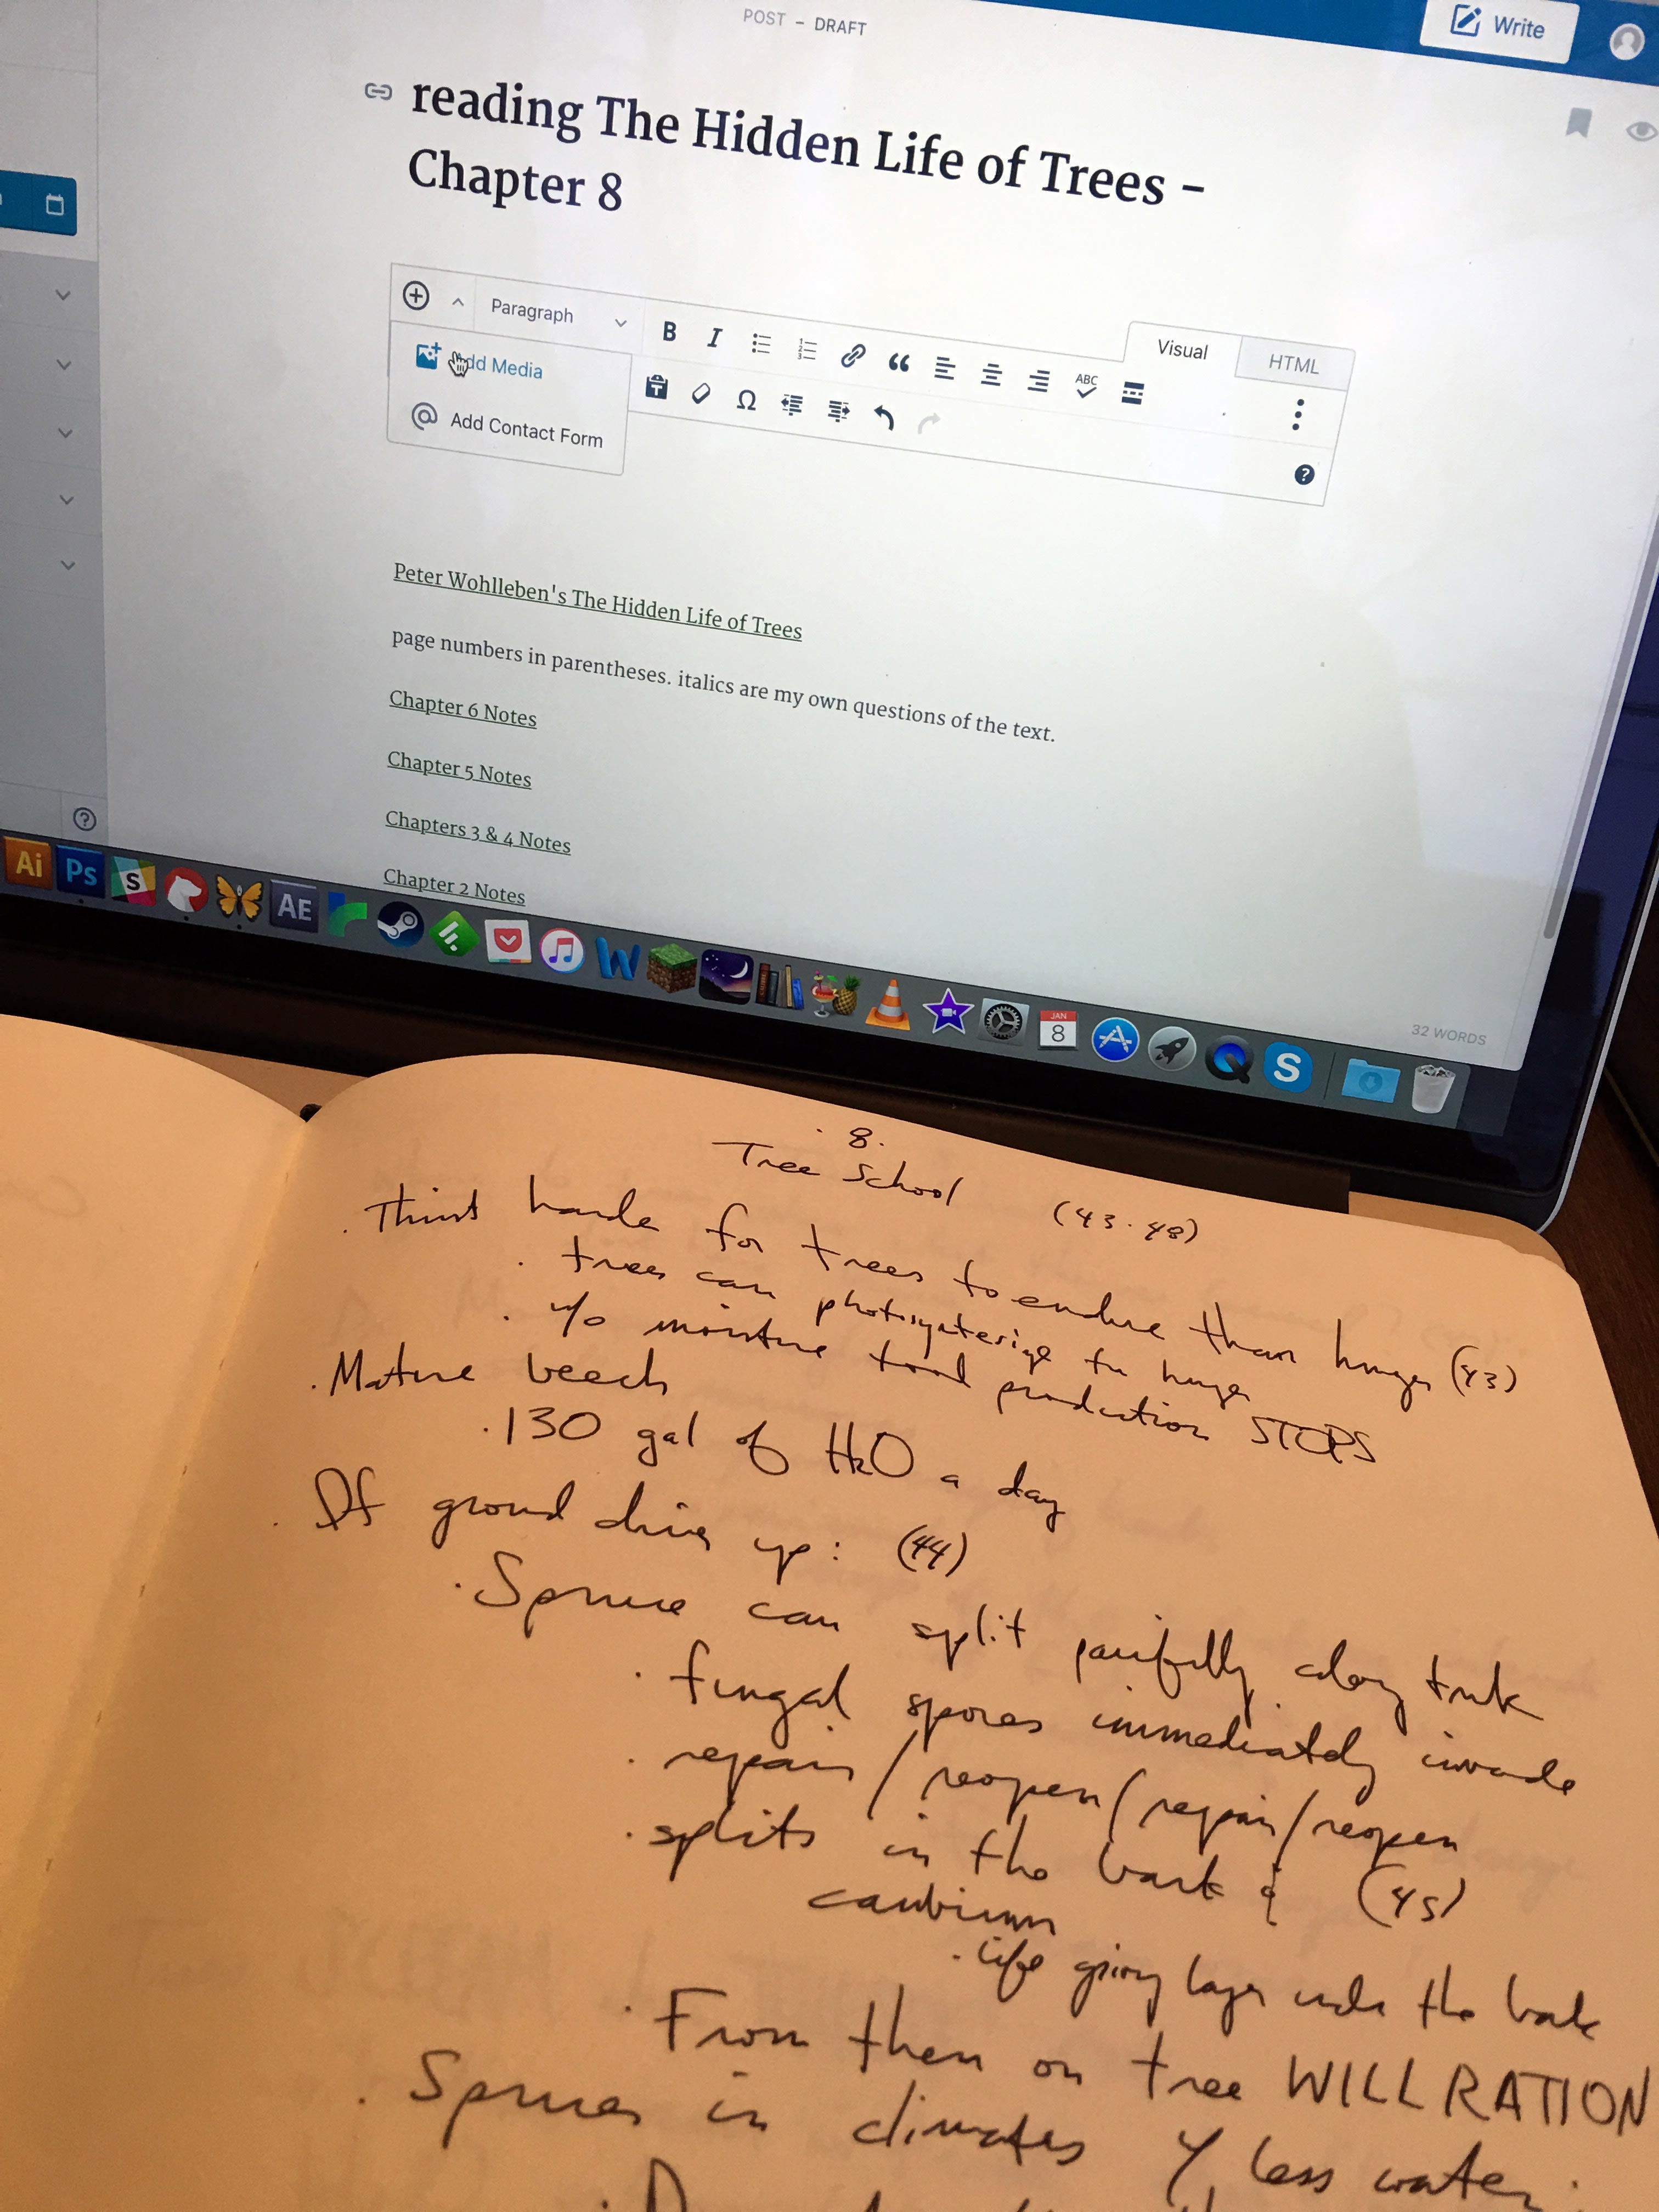 POST – DRAFT
Write
reading The Hidden Life of Trees –
Chapter 8
Paragraph
B I ABC
Visual
HTML
Add Media
Add Contact Form
Peter Wohlleben's The Hidden Life of Trees
page numbers in parentheses. italics are my own questions of the text.
Chapter 6 Notes
Chapter 5 Notes
Chapters 3 & 4 Notes
Chapter 2 Notes
32 WORDS
Ai Ps S AE W JAN 8 S
8.
Tree School (43-48)
. Thirst harder for trees to endure than hunger (43)
. trees can photosynthesize for hunger
. w/o moisture food production STOPS
. Mature beech
. 130 gal of H2O a day
. If ground dries up: (44)
. Spruce can split painfully along trunk
. fungal spores immediately invade
. repair/reopen/repair/reopen
. splits in the bark & (45)
cambium
. life giving layer under the bark
. From then on tree WILL RATION
. Spruces in climates w/ less water